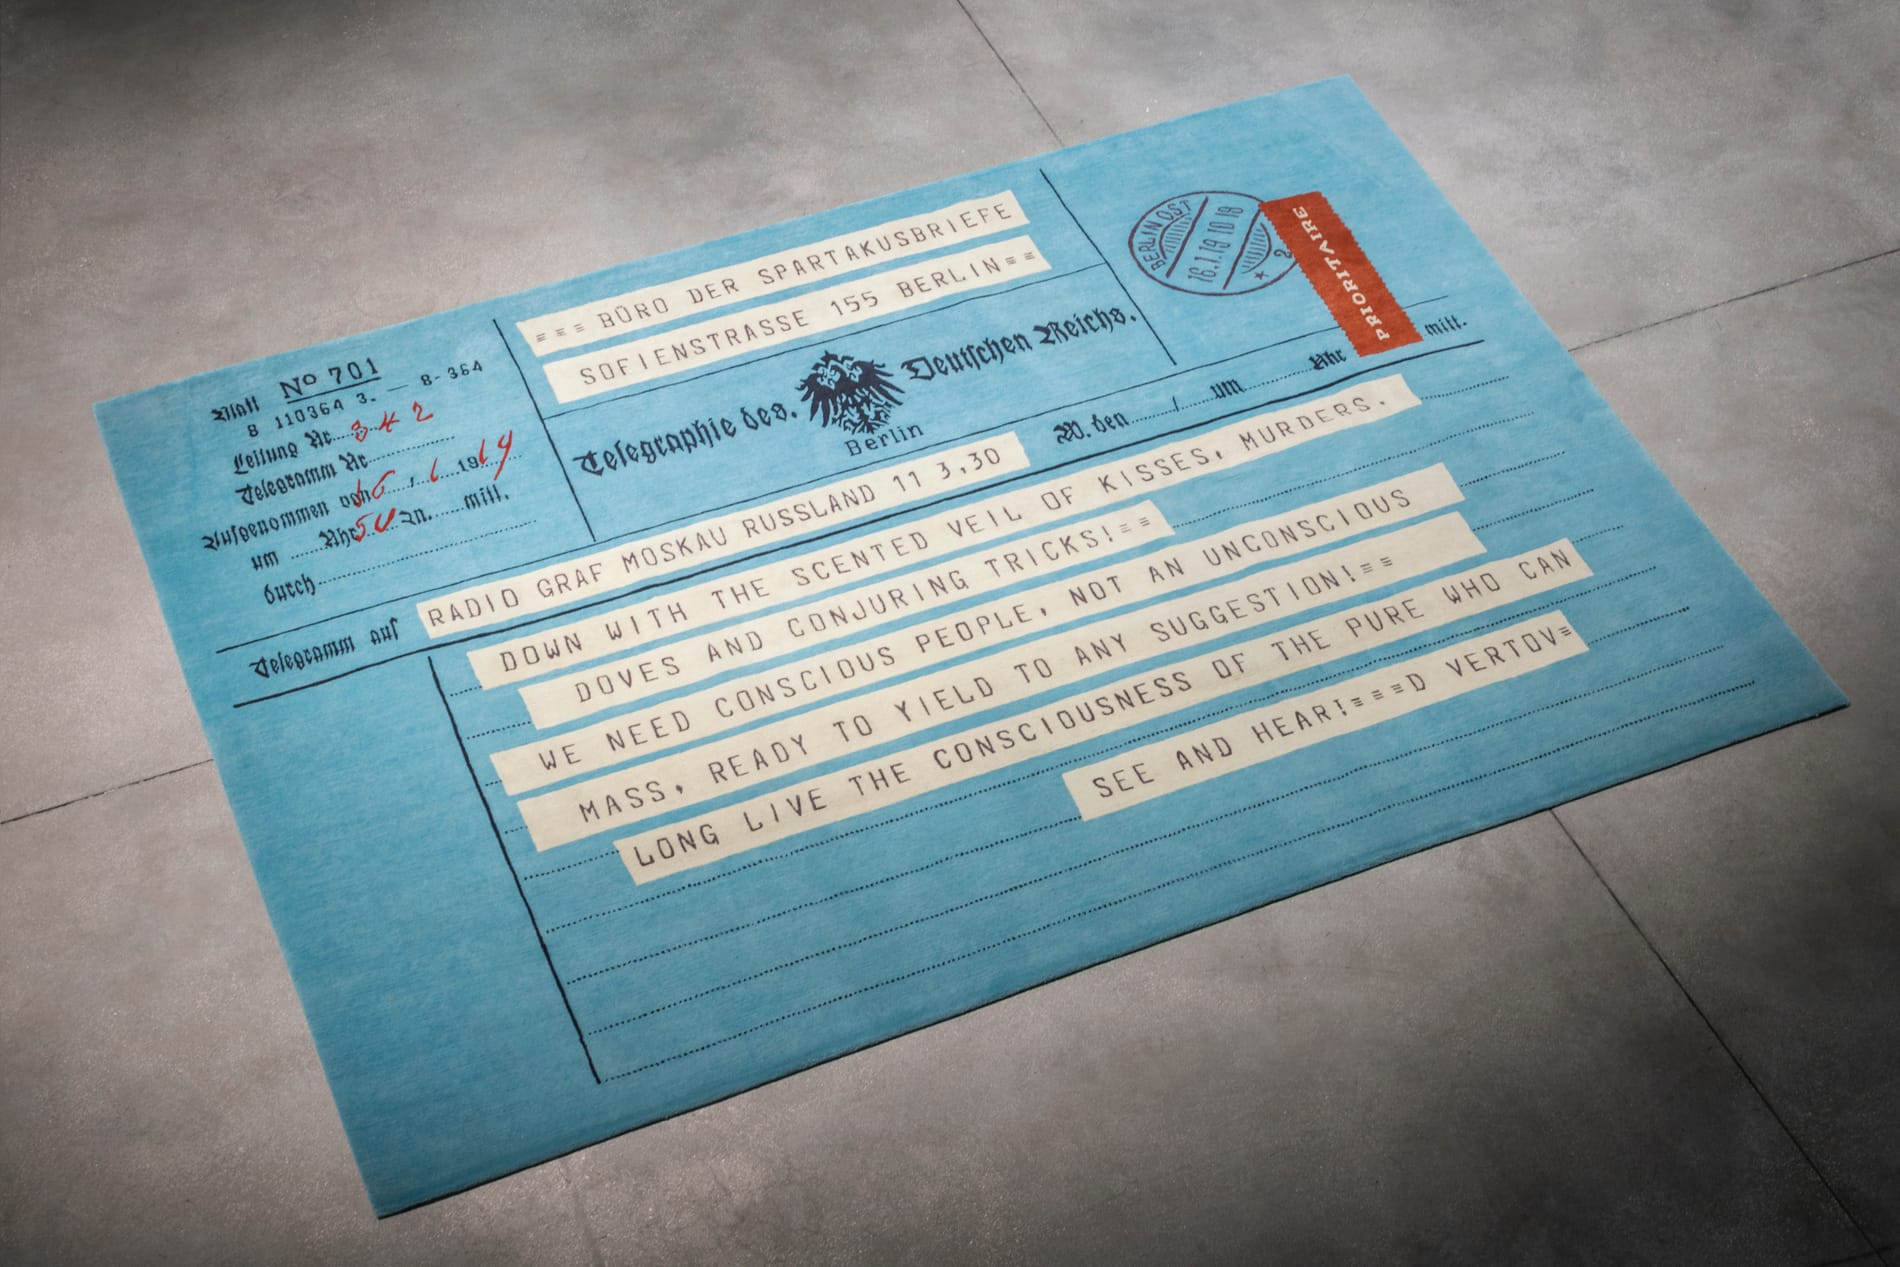 ===BÜRO DER SPARTAKUSBRIEFE
SOFIENSTRASSE 155 BERLIN==
Blatt No 701
8 110364 3. — 8-364
Leitung Nr. 342
Telegramm Nr.
Aufgenommen von 16 / 1 1919
um Uhr 50 M. mitt.
durch
Telegraphie des Deutschen Reichs.
Berlin
BERLIN OST
16.1.19 10
2
PRIORITAIRE
W. den / um Uhr mitt.
Telegramm aus RADIO GRAF MOSKAU RUSSLAND 11 3,30
DOWN WITH THE SCENTED VEIL OF KISSES, MURDERS,
DOVES AND CONJURING TRICKS!==
WE NEED CONSCIOUS PEOPLE, NOT AN UNCONSCIOUS
MASS, READY TO YIELD TO ANY SUGGESTION!==
LONG LIVE THE CONSCIOUSNESS OF THE PURE WHO CAN
SEE AND HEAR!===D VERTOV=